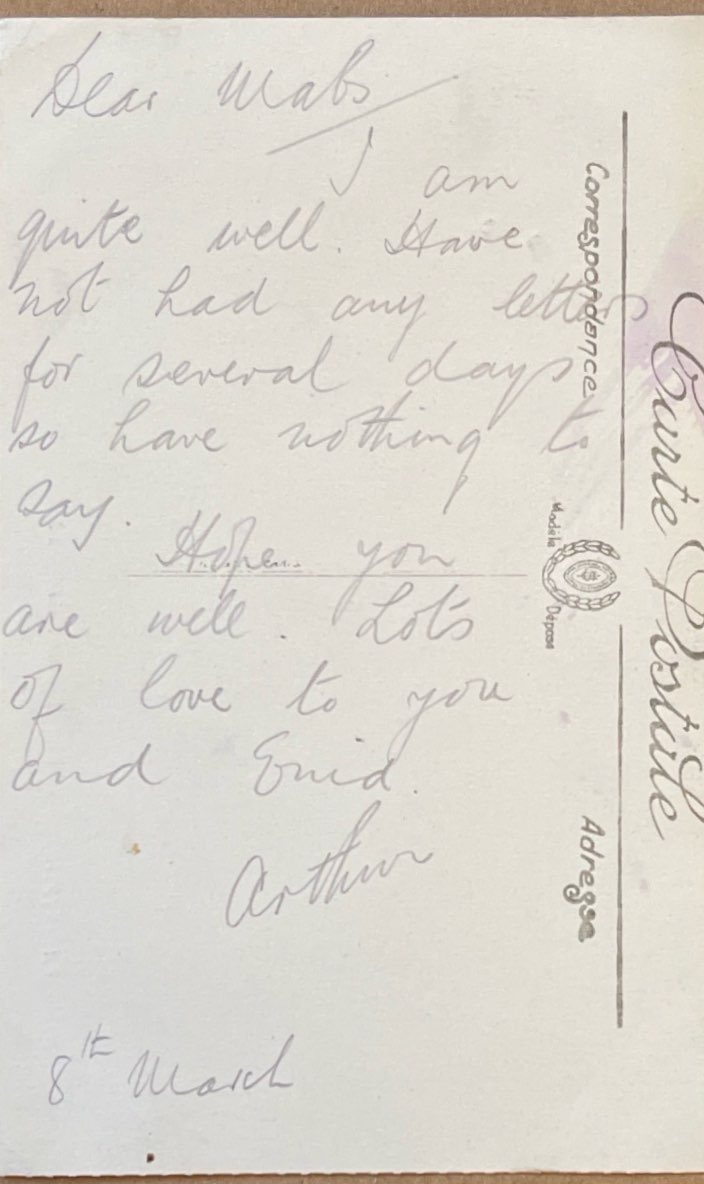 Dear Mabs
I am
quite well. Have
not had any letters
for several days
so have nothing to
say.
Hope you
are well. Lots
of love to you
and Enid.
Arthur
8th March
Carte Postale
Correspondance
Modèle
Déposé
Adresse